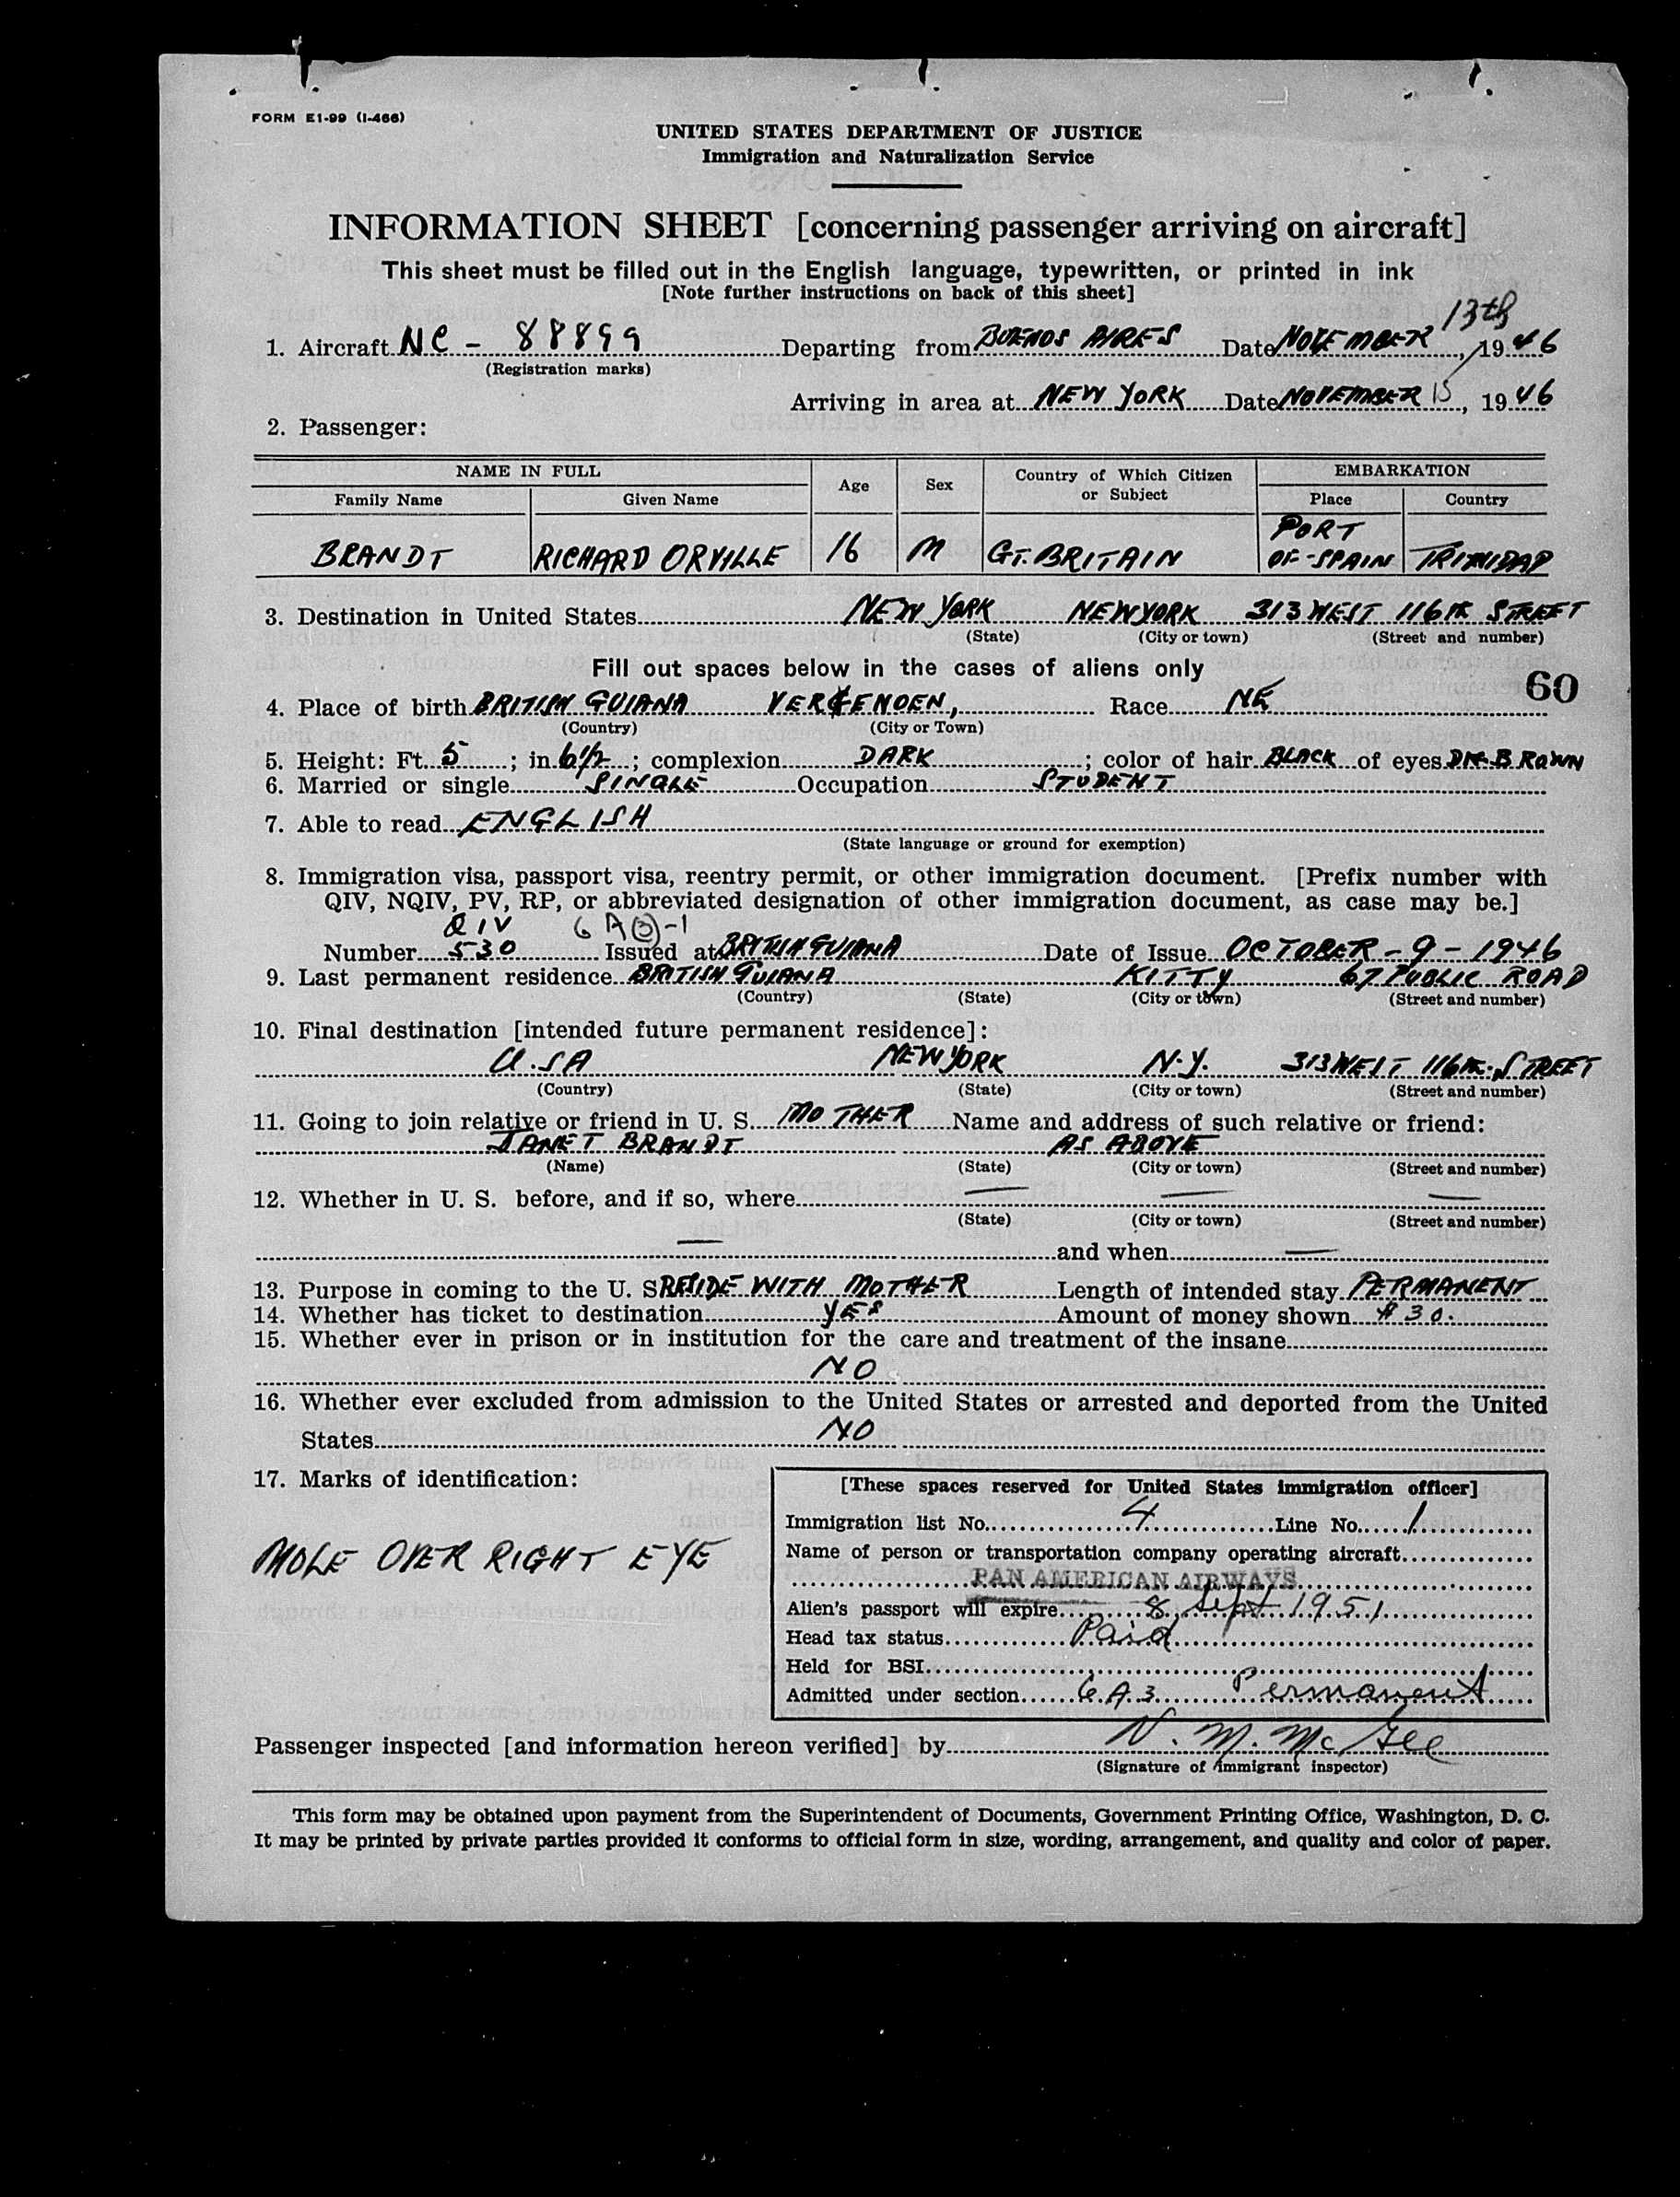 FORM E1-99 (I-466)
UNITED STATES DEPARTMENT OF JUSTICE
Immigration and Naturalization Service
INFORMATION SHEET [concerning passenger arriving on aircraft]
This sheet must be filled out in the English language, typewritten, or printed in ink
[Note further instructions on back of this sheet]
1. Aircraft NC - 88899 Departing from BUENOS AIRES Date NOVEMBER 13th, 1946
(Registration marks)
Arriving in area at NEW YORK Date NOVEMBER 15, 1946
2. Passenger:
NAME IN FULL Age Sex Country of Which Citizen or Subject EMBARKATION
Family Name Given Name Place Country
BRANDT RICHARD ORVILLE 16 M GT. BRITAIN PORT OF-SPAIN TRINIDAD
3. Destination in United States NEW YORK NEW YORK 313 WEST 116TH STREET
(State) (City or town) (Street and number)
Fill out spaces below in the cases of aliens only
60
4. Place of birth BRITISH GUIANA Race NE
(Country) (City or Town)
5. Height: Ft. 5; in. 6 1/2; complexion DARK; color of hair BLACK of eyes DK. BROWN
6. Married or single SINGLE Occupation STUDENT
7. Able to read ENGLISH
(State language or ground for exemption)
8. Immigration visa, passport visa, reentry permit, or other immigration document. [Prefix number with
QIV, NQIV, PV, RP, or abbreviated designation of other immigration document, as case may be.]
QIV 6 A (3)-1
Number 530 Issued at BRITISH GUIANA Date of Issue OCTOBER - 9 - 1946
9. Last permanent residence BRITISH GUIANA KITTY 67 PUBLIC ROAD
(Country) (State) (City or town) (Street and number)
10. Final destination [intended future permanent residence]:
U.SA NEW YORK N.Y. 313 WEST 116TH. STREET
(Country) (State) (City or town) (Street and number)
11. Going to join relative or friend in U. S. MOTHER Name and address of such relative or friend:
JANET BRANDT AS ABOVE
(Name) (State) (City or town) (Street and number)
12. Whether in U. S. before, and if so, where — — —
(State) (City or town) (Street and number)
— and when —
13. Purpose in coming to the U. S. RESIDE WITH MOTHER Length of intended stay PERMANENT
14. Whether has ticket to destination YES Amount of money shown $30.
15. Whether ever in prison or in institution for the care and treatment of the insane
NO
16. Whether ever excluded from admission to the United States or arrested and deported from the United
States NO
17. Marks of identification:
MOLE OVER RIGHT EYE
[These spaces reserved for United States immigration officer]
Immigration list No. 4 Line No. 1
Name of person or transportation company operating aircraft
PAN AMERICAN AIRWAYS
Alien's passport will expire 8 Sept 1951
Head tax status Paid
Held for BSI
Admitted under section 6.A.3 Permanent
Passenger inspected [and information hereon verified] by N. M. McGee
(Signature of immigrant inspector)
This form may be obtained upon payment from the Superintendent of Documents, Government Printing Office, Washington, D. C.
It may be printed by private parties provided it conforms to official form in size, wording, arrangement, and quality and color of paper.